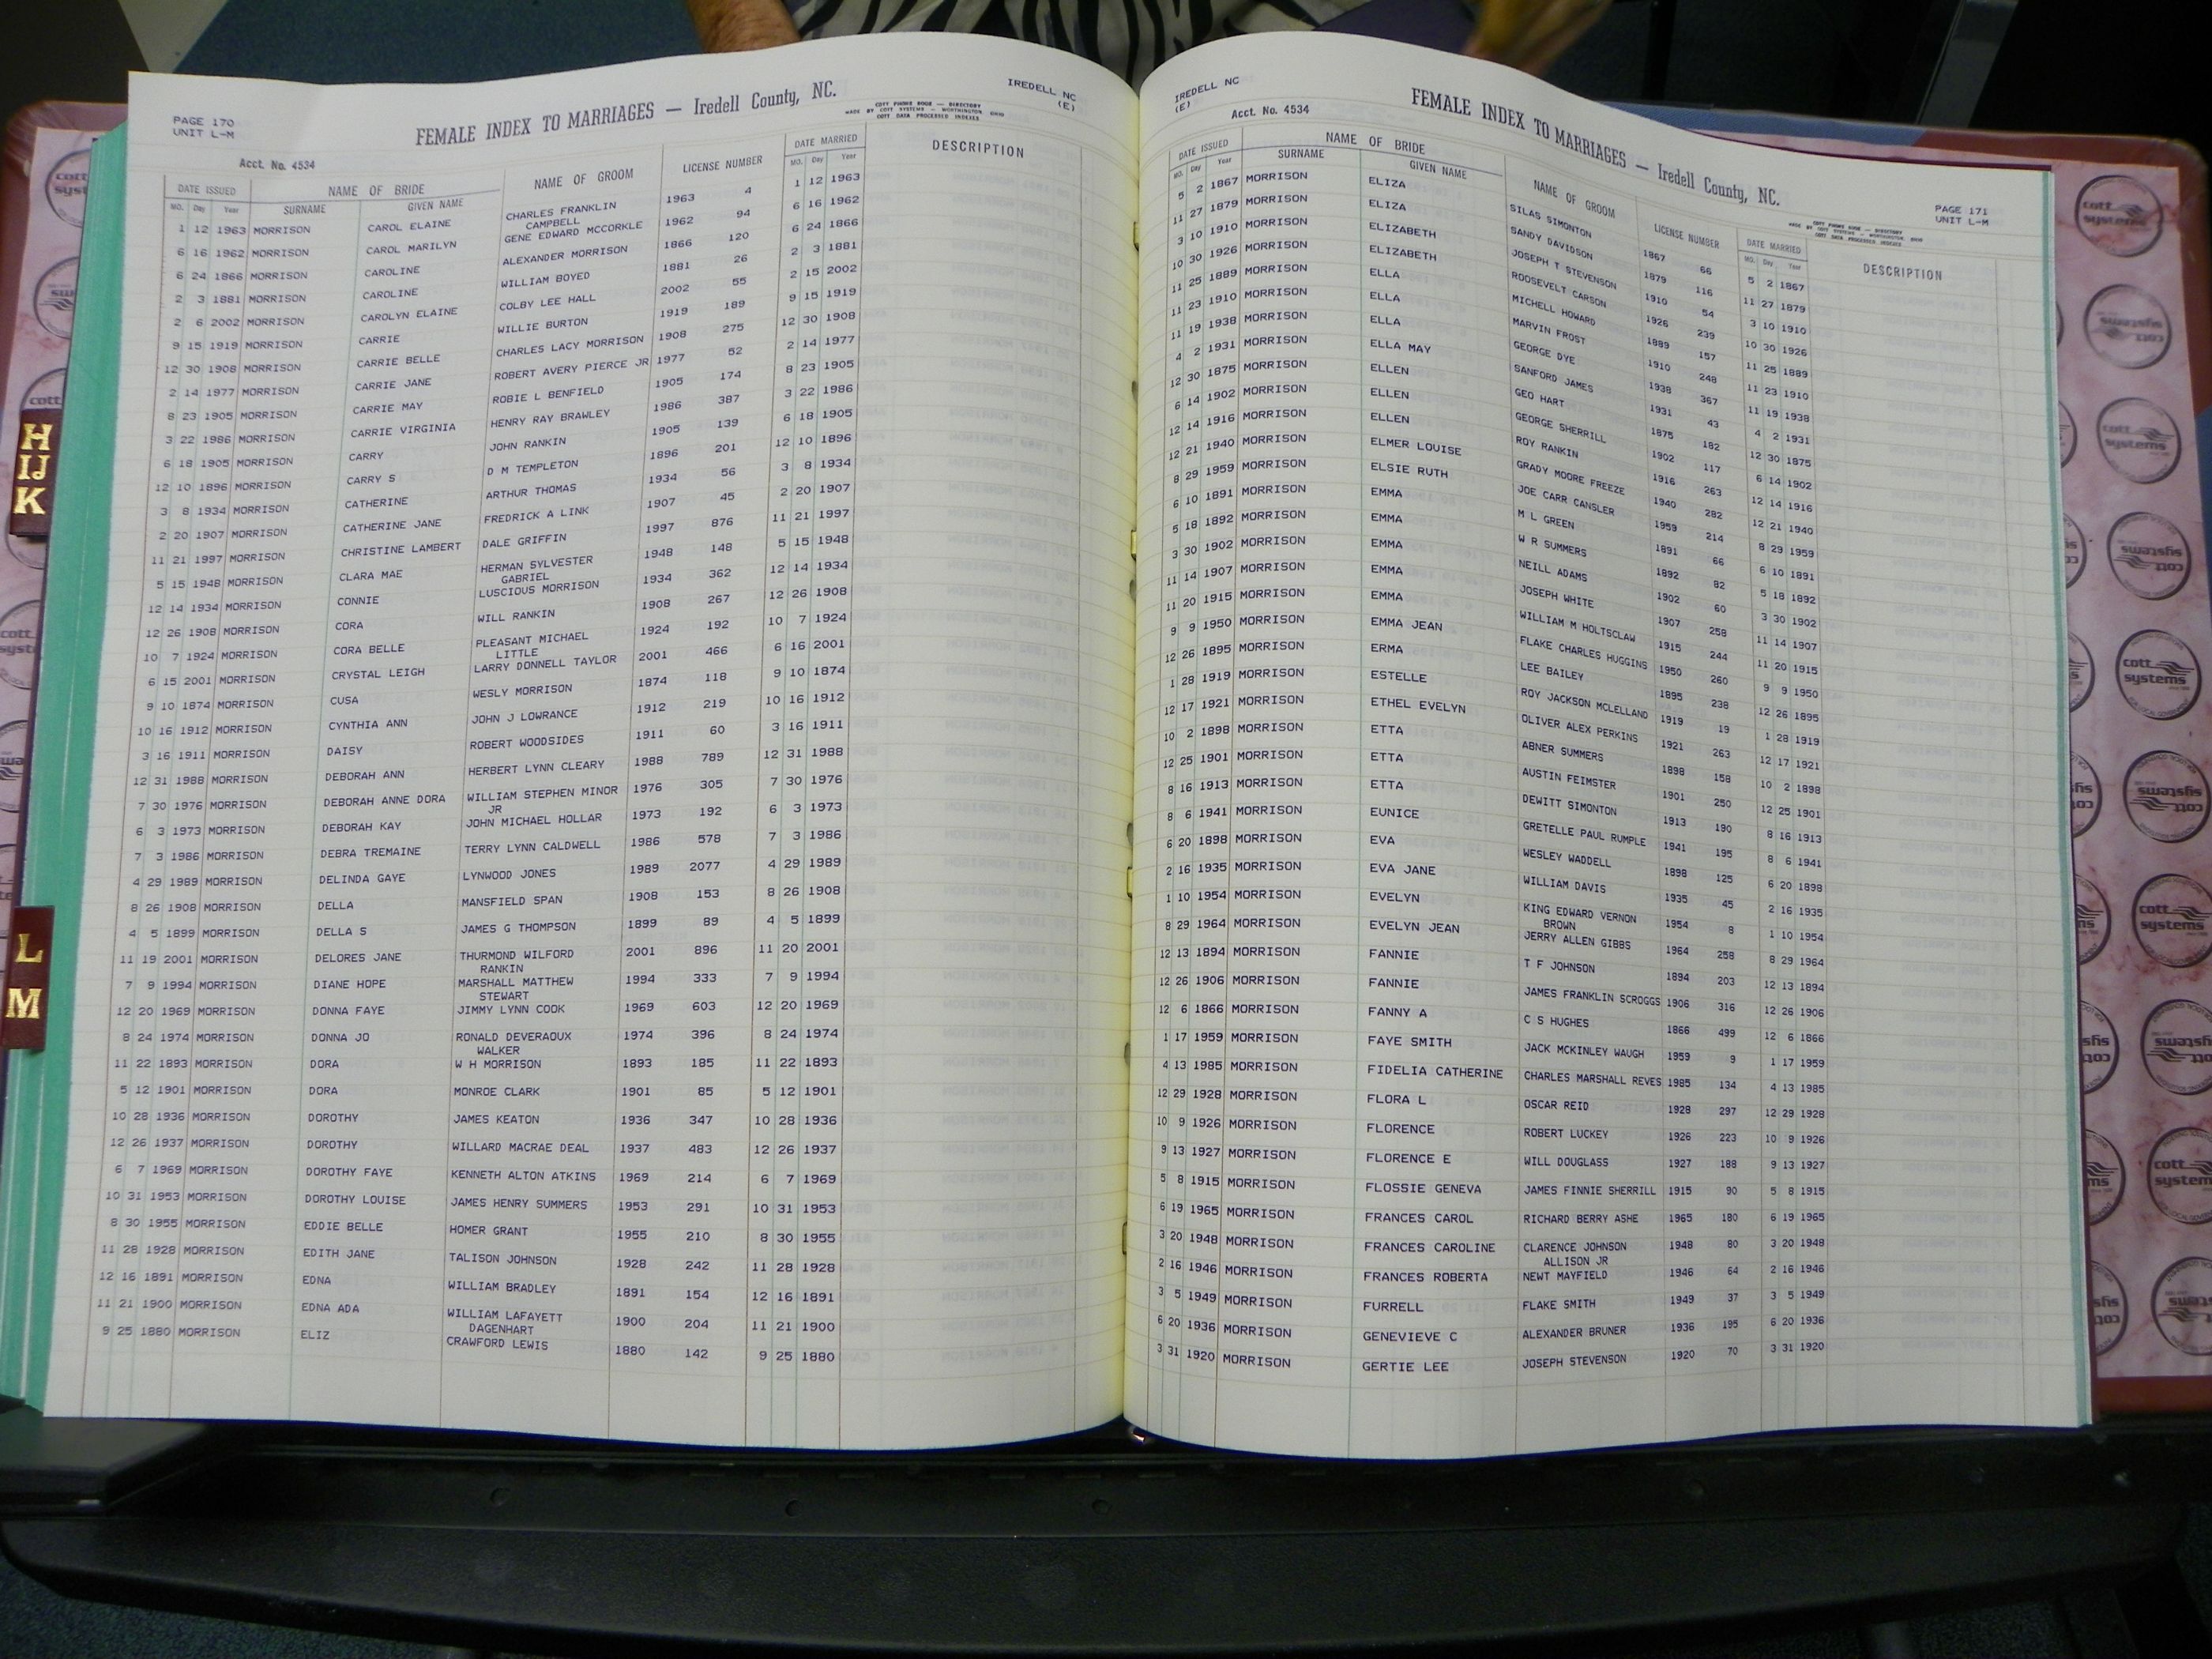 PAGE 170
UNIT L-M
FEMALE INDEX TO MARRIAGES — Iredell County, NC.
IREDELL NC
(E)
COTT PHONE BOOK — DIRECTORY
MADE BY COTT SYSTEMS — WORTHINGTON OHIO
COTT DATA PROCESSED INDEXES
Acct. No. 4534
DATE ISSUED NAME OF BRIDE NAME OF GROOM LICENSE NUMBER DATE MARRIED DESCRIPTION
MO. Day Year SURNAME GIVEN NAME MO. Day Year
1 12 1963 MORRISON CAROL ELAINE CHARLES FRANKLIN 1963 4 1 12 1963
CAMPBELL
6 16 1962 MORRISON CAROL MARILYN GENE EDWARD MCCORKLE 1962 94 6 16 1962
6 24 1866 MORRISON CAROLINE ALEXANDER MORRISON 1866 120 6 24 1866
2 3 1881 MORRISON CAROLINE WILLIAM BOYED 1881 26 2 3 1881
2 6 2002 MORRISON CAROLYN ELAINE COLBY LEE HALL 2002 55 2 15 2002
9 15 1919 MORRISON CARRIE WILLIE BURTON 1919 189 9 15 1919
12 30 1908 MORRISON CARRIE BELLE CHARLES LACY MORRISON 1908 275 12 30 1908
2 14 1977 MORRISON CARRIE JANE ROBERT AVERY PIERCE JR 1977 52 2 14 1977
8 23 1905 MORRISON CARRIE MAY ROBIE L BENFIELD 1905 174 8 23 1905
3 22 1986 MORRISON CARRIE VIRGINIA HENRY RAY BRAWLEY 1986 387 3 22 1986
6 18 1905 MORRISON CARRY JOHN RANKIN 1905 139 6 18 1905
12 10 1896 MORRISON CARRY S D M TEMPLETON 1896 201 12 10 1896
3 8 1934 MORRISON CATHERINE ARTHUR THOMAS 1934 56 3 8 1934
2 20 1907 MORRISON CATHERINE JANE FREDRICK A LINK 1907 45 2 20 1907
11 21 1997 MORRISON CHRISTINE LAMBERT DALE GRIFFIN 1997 876 11 21 1997
5 15 1948 MORRISON CLARA MAE HERMAN SYLVESTER 1948 148 5 15 1948
GABRIEL
12 14 1934 MORRISON CONNIE LUSCIOUS MORRISON 1934 362 12 14 1934
12 26 1908 MORRISON CORA WILL RANKIN 1908 267 12 26 1908
10 7 1924 MORRISON CORA BELLE PLEASANT MICHAEL 1924 192 10 7 1924
LITTLE
6 15 2001 MORRISON CRYSTAL LEIGH LARRY DONNELL TAYLOR 2001 466 6 16 2001
9 10 1874 MORRISON CUSA WESLY MORRISON 1874 118 9 10 1874
10 16 1912 MORRISON CYNTHIA ANN JOHN J LOWRANCE 1912 219 10 16 1912
3 16 1911 MORRISON DAISY ROBERT WOODSIDES 1911 60 3 16 1911
12 31 1988 MORRISON DEBORAH ANN HERBERT LYNN CLEARY 1988 789 12 31 1988
7 30 1976 MORRISON DEBORAH ANNE DORA WILLIAM STEPHEN MINOR 1976 305 7 30 1976
JR
6 3 1973 MORRISON DEBORAH KAY JOHN MICHAEL HOLLAR 1973 192 6 3 1973
7 3 1986 MORRISON DEBRA TREMAINE TERRY LYNN CALDWELL 1986 578 7 3 1986
4 29 1989 MORRISON DELINDA GAYE LYNWOOD JONES 1989 2077 4 29 1989
8 26 1908 MORRISON DELLA MANSFIELD SPAN 1908 153 8 26 1908
4 5 1899 MORRISON DELLA S JAMES G THOMPSON 1899 89 4 5 1899
11 19 2001 MORRISON DELORES JANE THURMOND WILFORD 2001 896 11 20 2001
RANKIN
7 9 1994 MORRISON DIANE HOPE MARSHALL MATTHEW 1994 333 7 9 1994
STEWART
12 20 1969 MORRISON DONNA FAYE JIMMY LYNN COOK 1969 603 12 20 1969
8 24 1974 MORRISON DONNA JO RONALD DEVERAOUX 1974 396 8 24 1974
WALKER
11 22 1893 MORRISON DORA W H MORRISON 1893 185 11 22 1893
5 12 1901 MORRISON DORA MONROE CLARK 1901 85 5 12 1901
10 28 1936 MORRISON DOROTHY JAMES KEATON 1936 347 10 28 1936
12 26 1937 MORRISON DOROTHY WILLARD MACRAE DEAL 1937 483 12 26 1937
6 7 1969 MORRISON DOROTHY FAYE KENNETH ALTON ATKINS 1969 214 6 7 1969
10 31 1953 MORRISON DOROTHY LOUISE JAMES HENRY SUMMERS 1953 291 10 31 1953
8 30 1955 MORRISON EDDIE BELLE HOMER GRANT 1955 210 8 30 1955
11 28 1928 MORRISON EDITH JANE TALISON JOHNSON 1928 242 11 28 1928
12 16 1891 MORRISON EDNA WILLIAM BRADLEY 1891 154 12 16 1891
11 21 1900 MORRISON EDNA ADA WILLIAM LAFAYETT 1900 204 11 21 1900
DAGENHART
9 25 1880 MORRISON ELIZ CRAWFORD LEWIS 1880 142 9 25 1880
IREDELL NC
(E)
FEMALE INDEX TO MARRIAGES — Iredell County, NC.
PAGE 171
UNIT L-M
COTT PHONE BOOK — DIRECTORY
MADE BY COTT SYSTEMS — WORTHINGTON OHIO
COTT DATA PROCESSED INDEXES
Acct. No. 4534
DATE ISSUED NAME OF BRIDE NAME OF GROOM LICENSE NUMBER DATE MARRIED DESCRIPTION
MO. Day Year SURNAME GIVEN NAME MO. Day Year
5 2 1867 MORRISON ELIZA SILAS SIMONTON 1867 66 5 2 1867
11 27 1879 MORRISON ELIZA SANDY DAVIDSON 1879 116 11 27 1879
3 10 1910 MORRISON ELIZABETH JOSEPH T STEVENSON 1910 54 3 10 1910
10 30 1926 MORRISON ELIZABETH ROOSEVELT CARSON 1926 239 10 30 1926
11 25 1889 MORRISON ELLA MICHELL HOWARD 1889 157 11 25 1889
11 23 1910 MORRISON ELLA MARVIN FROST 1910 248 11 23 1910
11 19 1938 MORRISON ELLA GEORGE DYE 1938 367 11 19 1938
4 2 1931 MORRISON ELLA MAY SANFORD JAMES 1931 43 4 2 1931
12 30 1875 MORRISON ELLEN GEO HART 1875 182 12 30 1875
6 14 1902 MORRISON ELLEN GEORGE SHERRILL 1902 117 6 14 1902
12 14 1916 MORRISON ELLEN ROY RANKIN 1916 263 12 14 1916
12 21 1940 MORRISON ELMER LOUISE GRADY MOORE FREEZE 1940 282 12 21 1940
8 29 1959 MORRISON ELSIE RUTH JOE CARR CANSLER 1959 214 8 29 1959
6 10 1891 MORRISON EMMA M L GREEN 1891 66 6 10 1891
5 18 1892 MORRISON EMMA W R SUMMERS 1892 82 5 18 1892
3 30 1902 MORRISON EMMA NEILL ADAMS 1902 60 3 30 1902
11 14 1907 MORRISON EMMA JOSEPH WHITE 1907 258 11 14 1907
11 20 1915 MORRISON EMMA WILLIAM M HOLTSCLAW 1915 244 11 20 1915
9 9 1950 MORRISON EMMA JEAN FLAKE CHARLES HUGGINS 1950 260 9 9 1950
12 26 1895 MORRISON ERMA LEE BAILEY 1895 238 12 26 1895
1 28 1919 MORRISON ESTELLE ROY JACKSON MCLELLAND 1919 19 1 28 1919
12 17 1921 MORRISON ETHEL EVELYN OLIVER ALEX PERKINS 1921 263 12 17 1921
10 2 1898 MORRISON ETTA ABNER SUMMERS 1898 158 10 2 1898
12 25 1901 MORRISON ETTA AUSTIN FEIMSTER 1901 250 12 25 1901
8 16 1913 MORRISON ETTA DEWITT SIMONTON 1913 190 8 16 1913
8 6 1941 MORRISON EUNICE GRETELLE PAUL RUMPLE 1941 195 8 6 1941
6 20 1898 MORRISON EVA WESLEY WADDELL 1898 125 6 20 1898
2 16 1935 MORRISON EVA JANE WILLIAM DAVIS 1935 45 2 16 1935
1 10 1954 MORRISON EVELYN KING EDWARD VERNON 1954 8 1 10 1954
BROWN
8 29 1964 MORRISON EVELYN JEAN JERRY ALLEN GIBBS 1964 258 8 29 1964
12 13 1894 MORRISON FANNIE T F JOHNSON 1894 203 12 13 1894
12 26 1906 MORRISON FANNIE JAMES FRANKLIN SCROGGS 1906 316 12 26 1906
12 6 1866 MORRISON FANNY A C S HUGHES 1866 499 12 6 1866
1 17 1959 MORRISON FAYE SMITH JACK MCKINLEY WAUGH 1959 9 1 17 1959
4 13 1985 MORRISON FIDELIA CATHERINE CHARLES MARSHALL REVES 1985 134 4 13 1985
12 29 1928 MORRISON FLORA L OSCAR REID 1928 297 12 29 1928
10 9 1926 MORRISON FLORENCE ROBERT LUCKEY 1926 223 10 9 1926
9 13 1927 MORRISON FLORENCE E WILL DOUGLASS 1927 188 9 13 1927
5 8 1915 MORRISON FLOSSIE GENEVA JAMES FINNIE SHERRILL 1915 90 5 8 1915
6 19 1965 MORRISON FRANCES CAROL RICHARD BERRY ASHE 1965 180 6 19 1965
3 20 1948 MORRISON FRANCES CAROLINE CLARENCE JOHNSON 1948 80 3 20 1948
ALLISON JR
2 16 1946 MORRISON FRANCES ROBERTA NEWT MAYFIELD 1946 64 2 16 1946
3 5 1949 MORRISON FURRELL FLAKE SMITH 1949 37 3 5 1949
6 20 1936 MORRISON GENEVIEVE C ALEXANDER BRUNER 1936 195 6 20 1936
3 31 1920 MORRISON GERTIE LEE JOSEPH STEVENSON 1920 70 3 31 1920
H
IJ
K
L
M
cott
systems